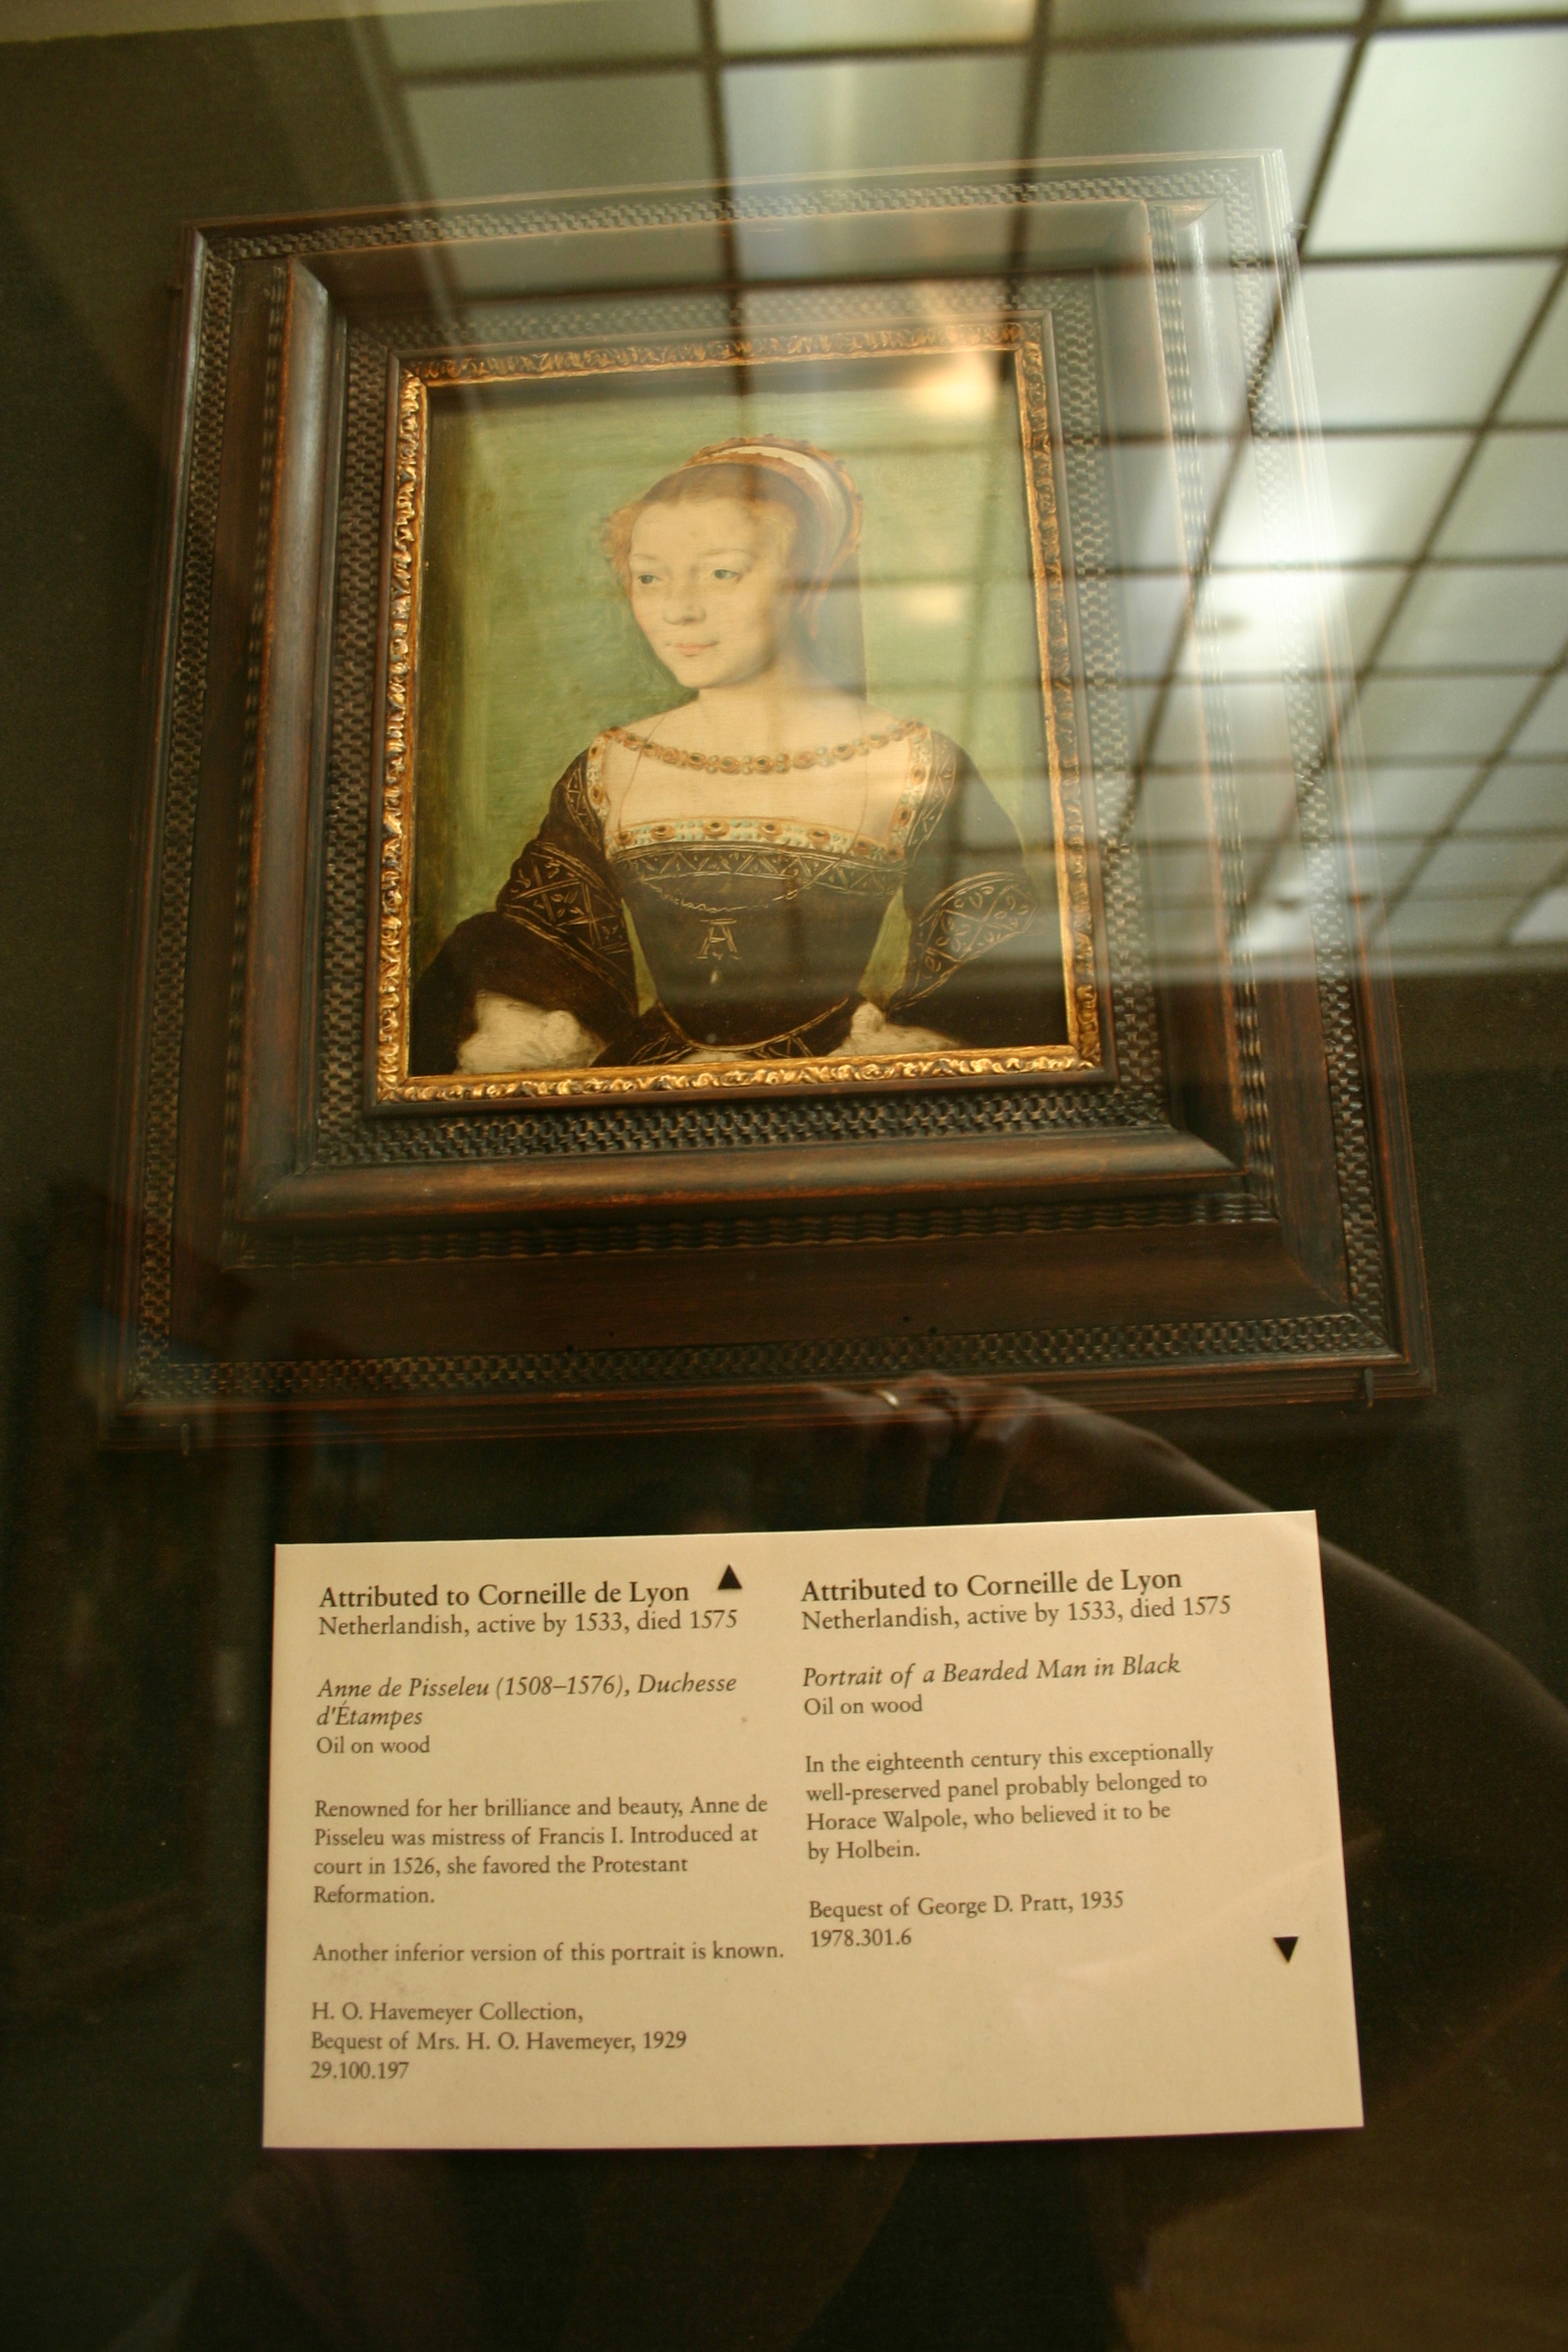 A
Attributed to Corneille de Lyon
Netherlandish, active by 1533, died 1575
Anne de Pisseleu (1508–1576), Duchesse
d'Étampes
Oil on wood
Renowned for her brilliance and beauty, Anne de
Pisseleu was mistress of Francis I. Introduced at
court in 1526, she favored the Protestant
Reformation.
Another inferior version of this portrait is known.
H. O. Havemeyer Collection,
Bequest of Mrs. H. O. Havemeyer, 1929
29.100.197
Attributed to Corneille de Lyon
Netherlandish, active by 1533, died 1575
Portrait of a Bearded Man in Black
Oil on wood
In the eighteenth century this exceptionally
well-preserved panel probably belonged to
Horace Walpole, who believed it to be
by Holbein.
Bequest of George D. Pratt, 1935
1978.301.6